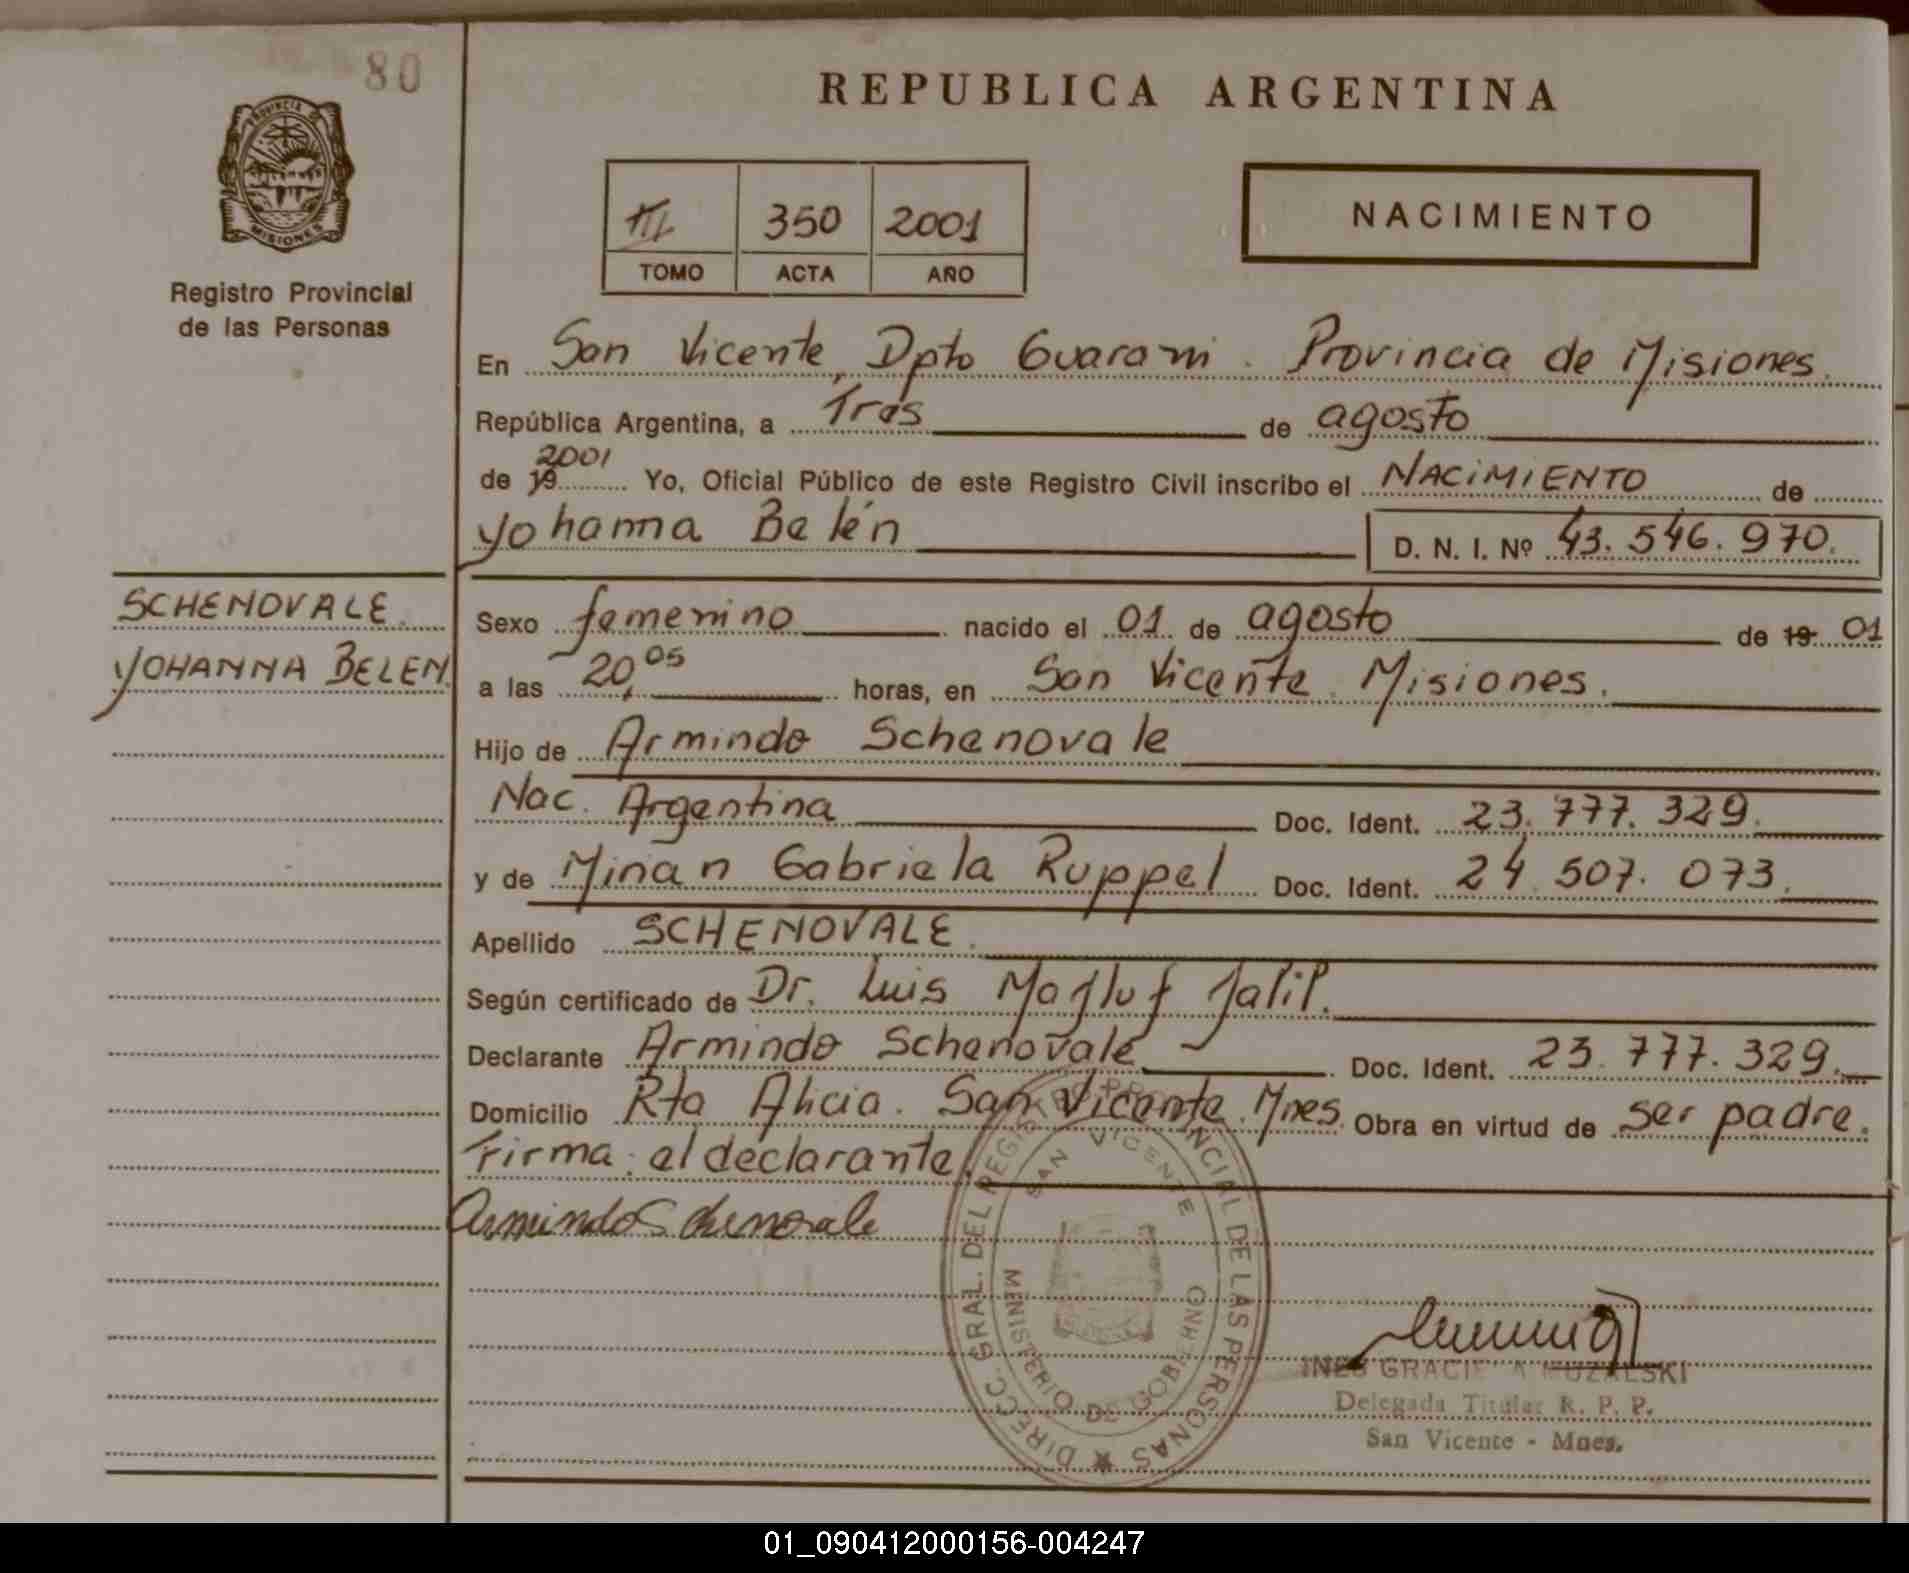 80
REPUBLICA ARGENTINA
PROVINCIA DE
MISIONES
Registro Provincial
de las Personas
III 350 2001
TOMO ACTA AÑO
NACIMIENTO
En San Vicente, Dpto Guarani. Provincia de Misiones.
República Argentina, a Tres de agosto
de 19 2001 Yo, Oficial Público de este Registro Civil inscribo el NACIMIENTO de
Yohanna Belén D. N. I. Nº 43.546.970.
SCHENOVALE.
YOHANNA BELEN.
Sexo femenino nacido el 01 de agosto de 19 01
a las 20,05 horas, en San Vicente. Misiones.
Hijo de Armindo Schenovale
Nac. Argentina Doc. Ident. 23.777.329.
y de Mirian Gabriela Ruppel Doc. Ident. 24.507.073.
Apellido SCHENOVALE.
Según certificado de Dr. Luis Jalil.
Declarante Armindo Schenovale Doc. Ident. 23.777.329.
Domicilio Rta Alicia. San Vicente. Mnes. Obra en virtud de ser padre.
Firma: el declarante.
Armindo Schenovale
DIRECC. GRAL. DEL REGISTRO PROVINCIAL DE LAS PERSONAS
SAN VICENTE
MINISTERIO DE GOBIERNO
INES GRACIELA
Delegada Titular R. P. P.
San Vicente - Mnes.
01_090412000156-004247